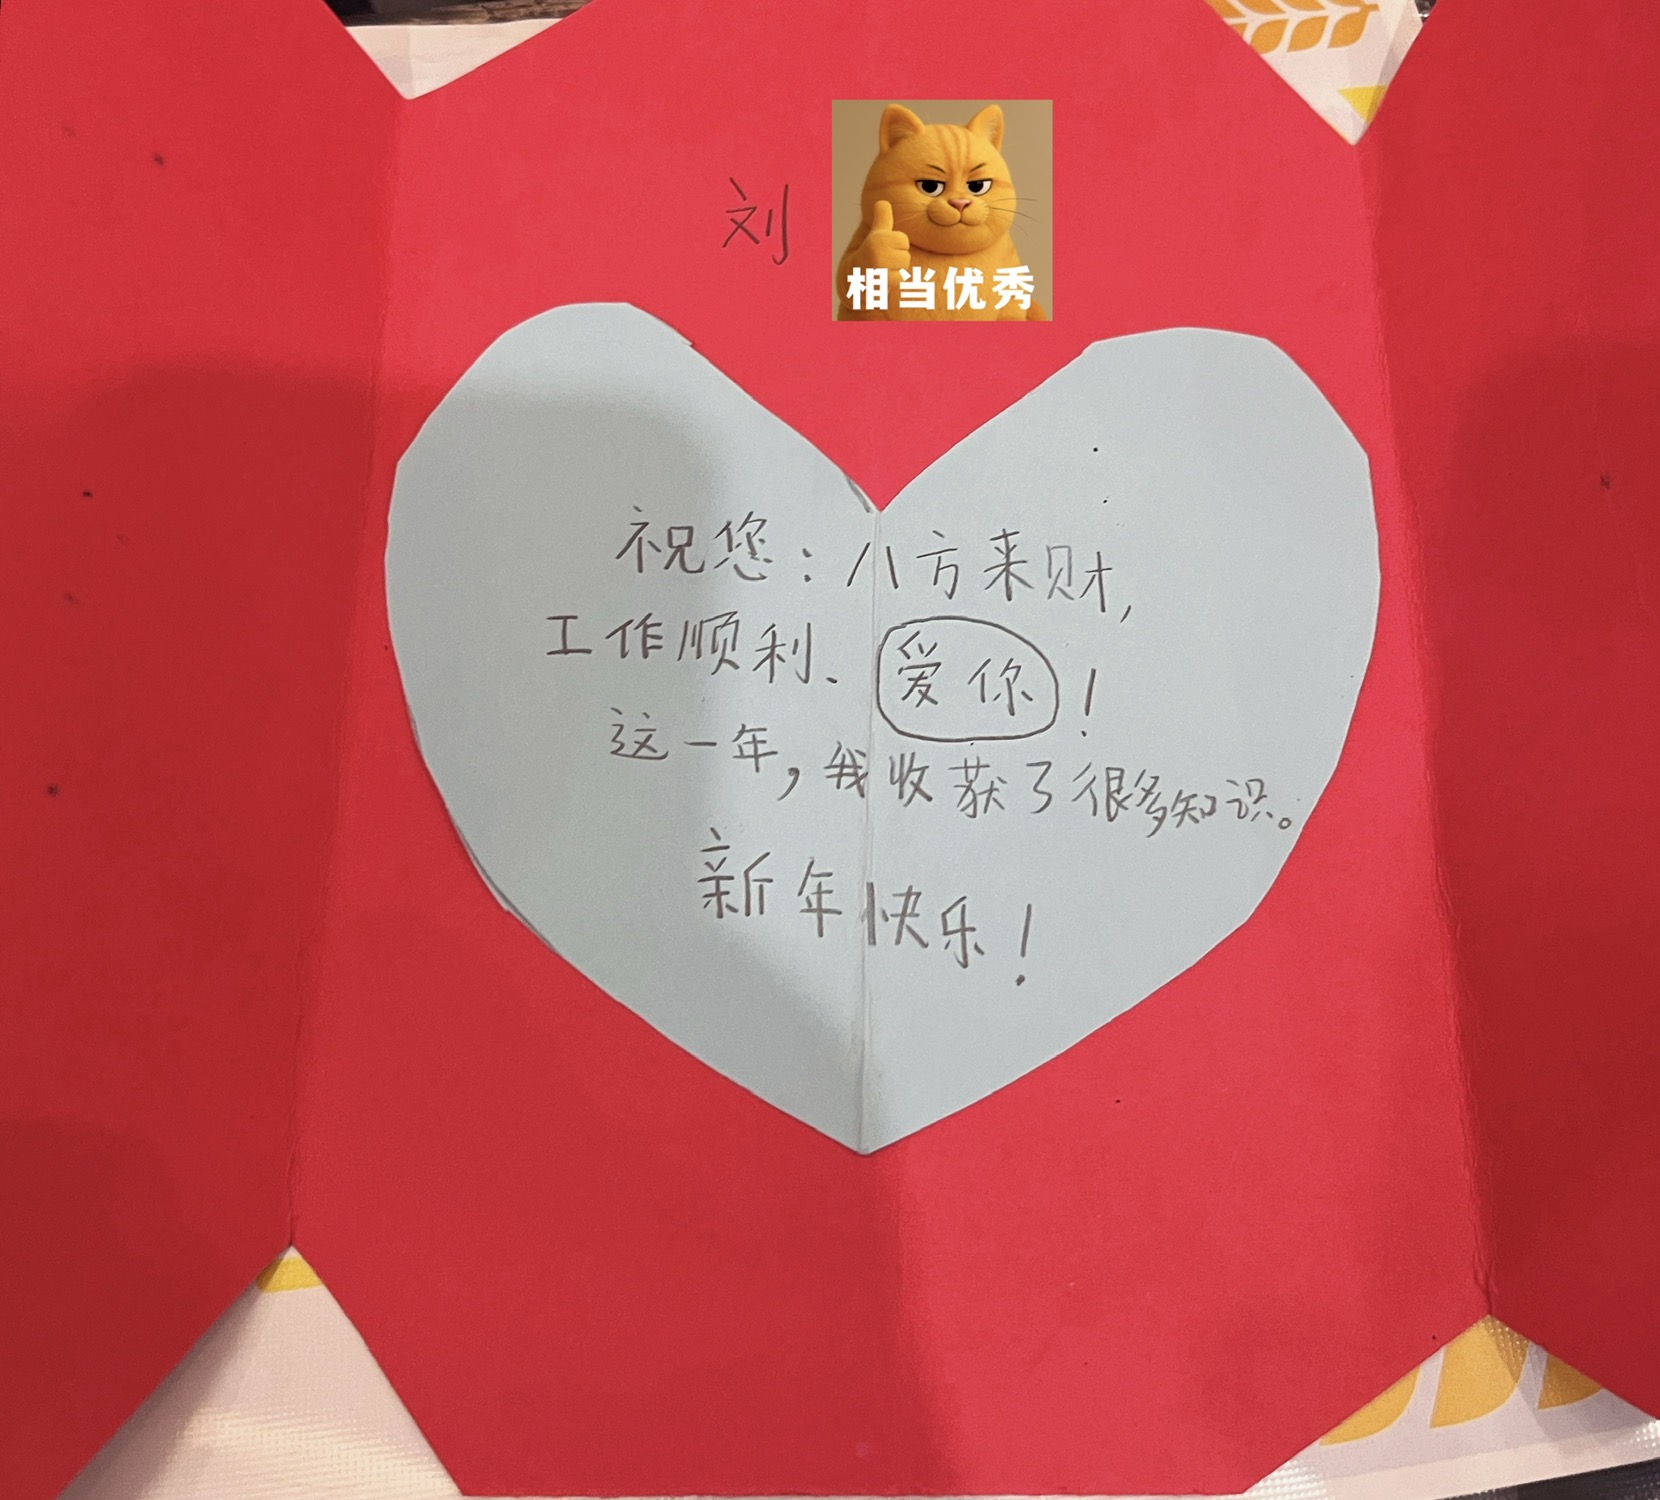 刘
相当优秀
祝您：八方来财，
工作顺利、爱你！
这一年，我收获了很多知识。
新年快乐！